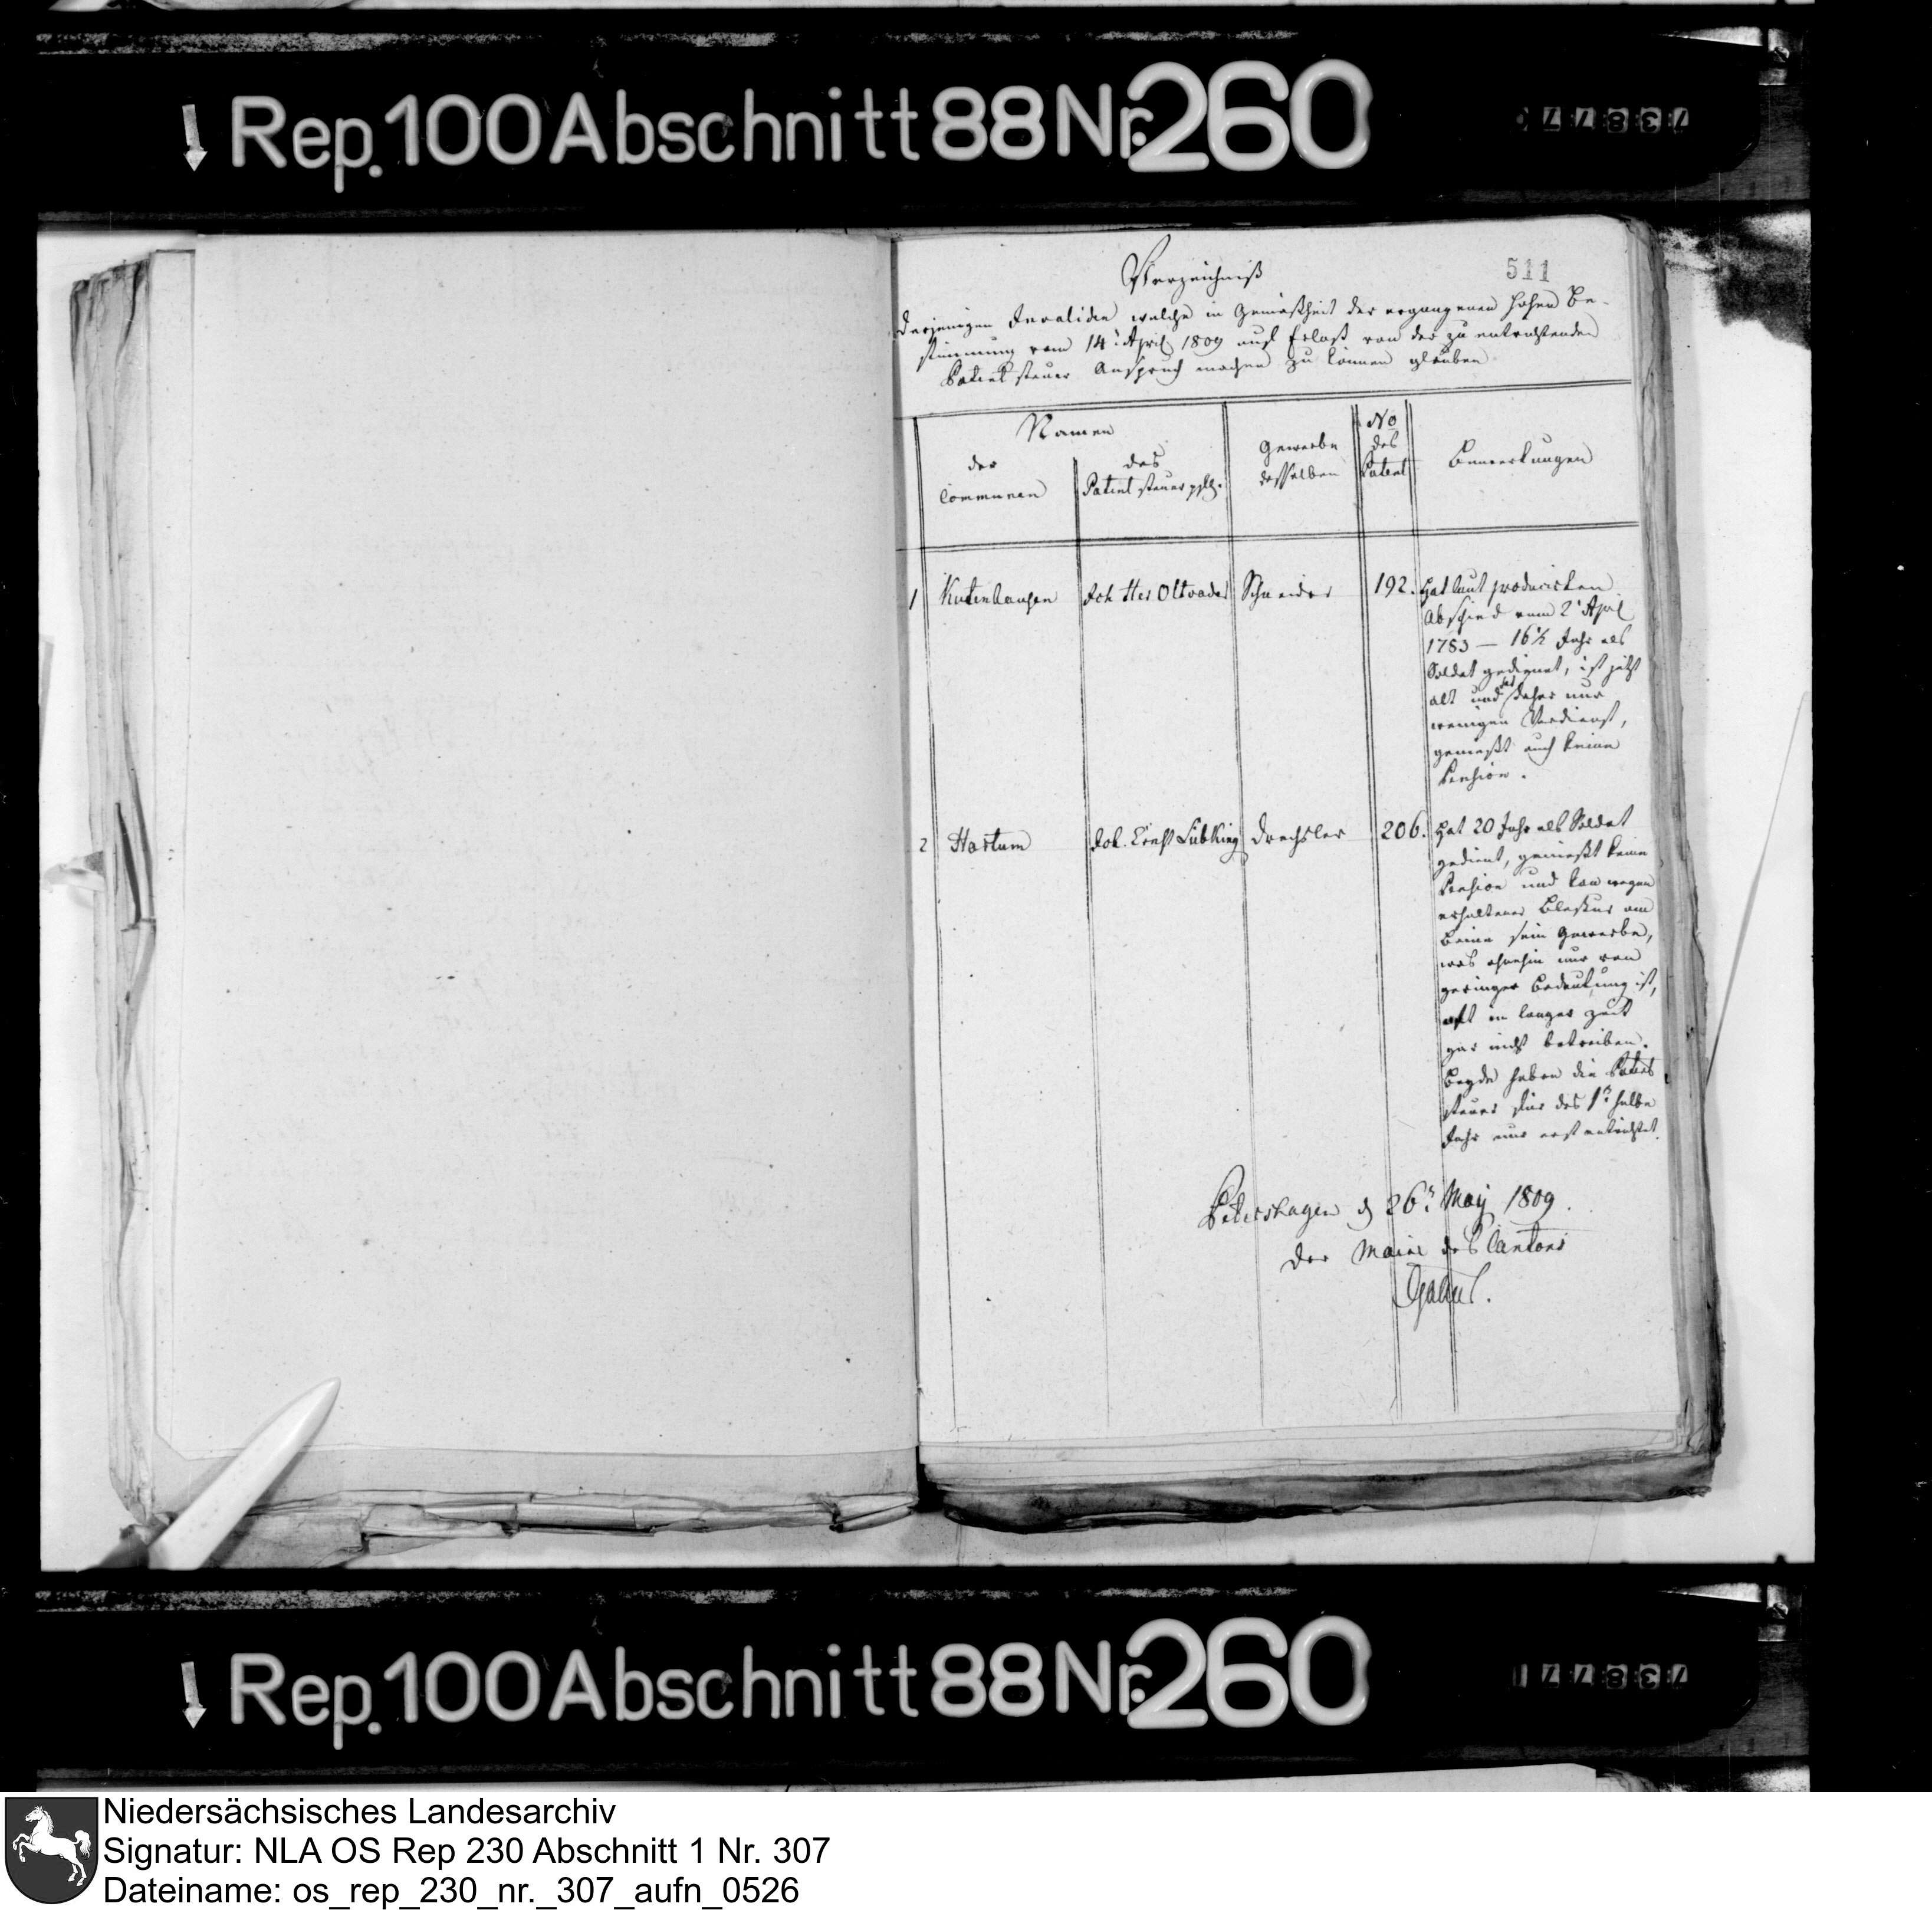 Rep. 100 Abschnitt 88 Nr. 260
73877
511
Verzeichniß
derjenigen Invaliden welche in Gemäßheit der ergangenen hohen Be-
stimmung vom 14t April 1809 auf Erlaß von der zu entrichtenden
Patentsteuer Anspruch machen zu können glauben
Namen
der
Communen
des
Patentsteuerpfl.
Gewerbe
desselben
No
des
Patent
Bemerkungen
1 Kutenhausen Joh Her Schneider 192. Hat laut producirten
Abschied vom 2t April
1783 — 16 1/2 Jahr als
Soldat gedienet, ist jetzt
alt und hat daher nur
wenigen Verdienst,
genießt auch keine
Pension.
2 Hartum Joh. Ernst Lübking Drechsler 206. Hat 20 Jahr als Soldat
gedient, genießt keine
Pension und kan wegen
erhaltener Blessur am
Beine sein Gewerbe,
was ohnehin nur von
geringer Bedeutung ist,
oft in langer Zeit
gar nicht betreiben.
Beyde haben die Patent
steuer für das 1te halbe
Jahr nur erst entrichtet.
Petershagen d 26t May 1809.
Der Maire des Cantons
Rep. 100 Abschnitt 88 Nr. 260
73877
Niedersächsisches Landesarchiv
Signatur: NLA OS Rep 230 Abschnitt 1 Nr. 307
Dateiname: os_rep_230_nr._307_aufn_0526